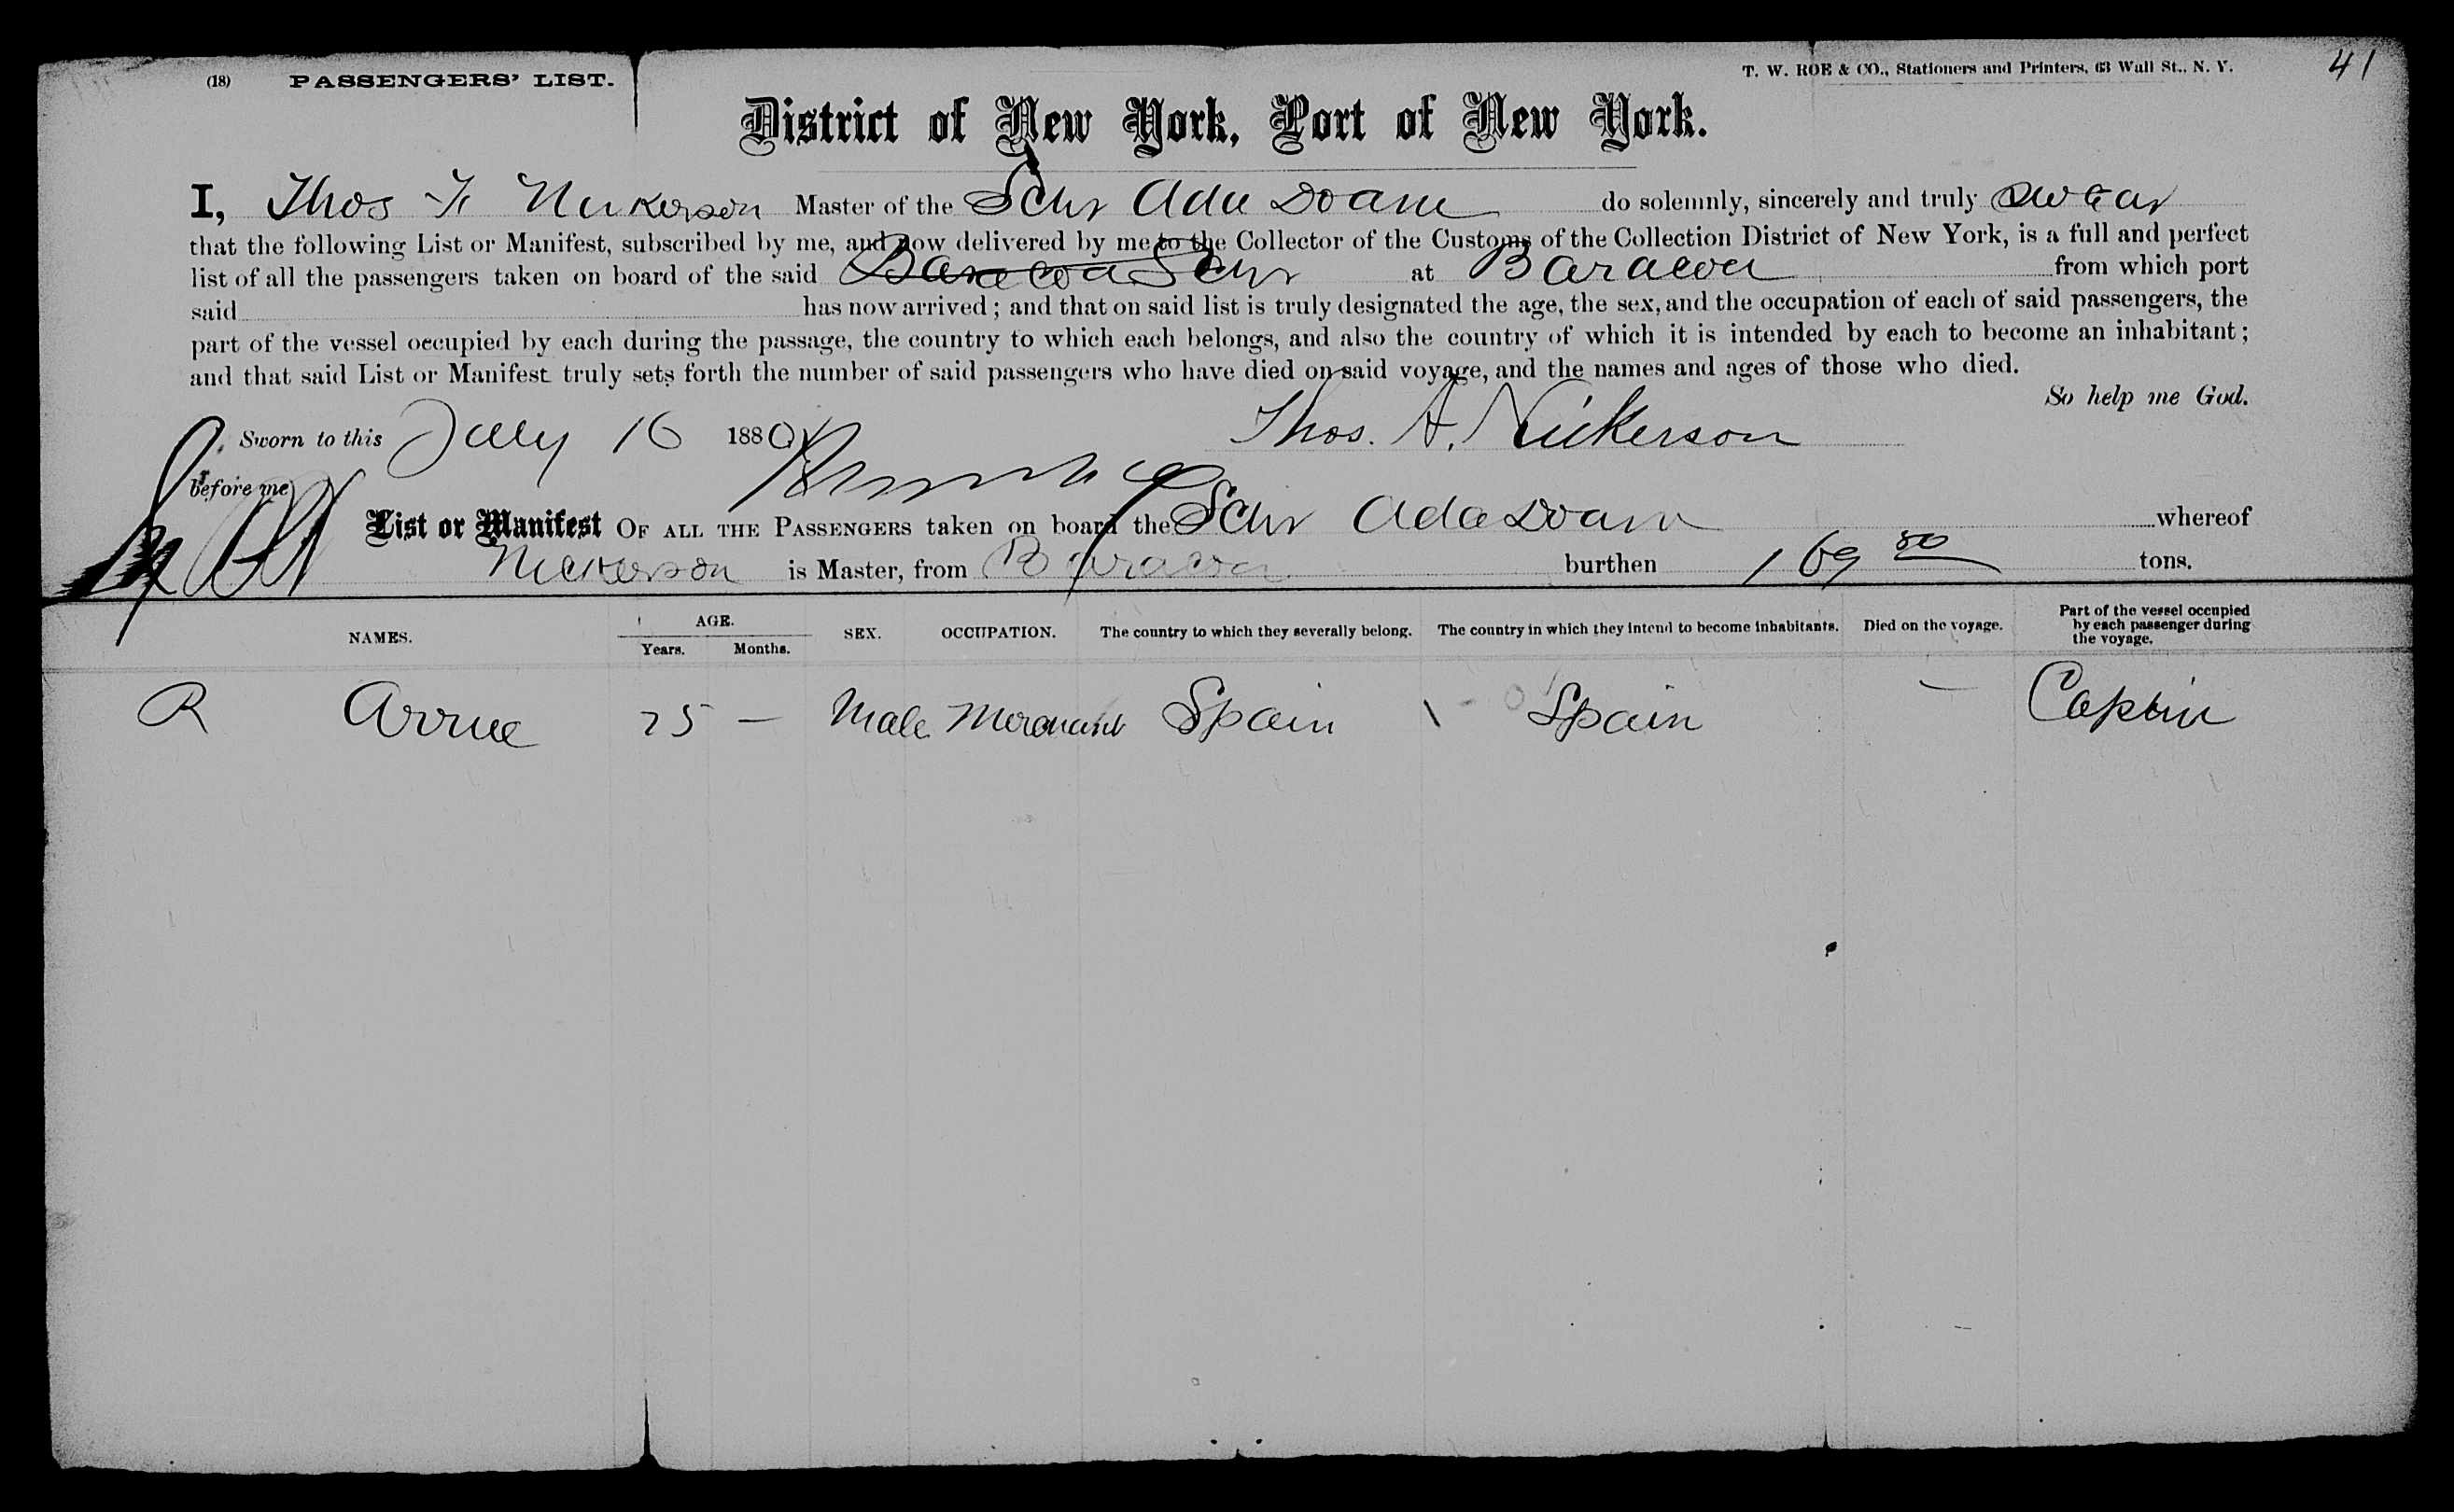 (18) PASSENGERS' LIST.
T. W. ROE & CO., Stationers and Printers, 63 Wall St., N. Y.
41
District of New York, Port of New York.
I, Thos Nickerson Master of the Schr Ada Doane do solemnly, sincerely and truly swear
that the following List or Manifest, subscribed by me, and now delivered by me to the Collector of the Customs of the Collection District of New York, is a full and perfect
list of all the passengers taken on board of the said Baracoa Schr at Baracoa from which port
said has now arrived; and that on said list is truly designated the age, the sex, and the occupation of each of said passengers, the
part of the vessel occupied by each during the passage, the country to which each belongs, and also the country of which it is intended by each to become an inhabitant;
and that said List or Manifest truly sets forth the number of said passengers who have died on said voyage, and the names and ages of those who died.
So help me God.
Sworn to this July 16 1880 Thos. A. Nickerson
before me
List or Manifest OF ALL THE PASSENGERS taken on board the Schr Ada Doane whereof
Nickerson is Master, from Baracoa burthen 169 80 tons.
NAMES. AGE. Years. Months. SEX. OCCUPATION. The country to which they severally belong. The country in which they intend to become inhabitants. Died on the voyage. Part of the vessel occupied by each passenger during the voyage.
R Arrue 25 — Male Merchant Spain \ Spain — Capbin